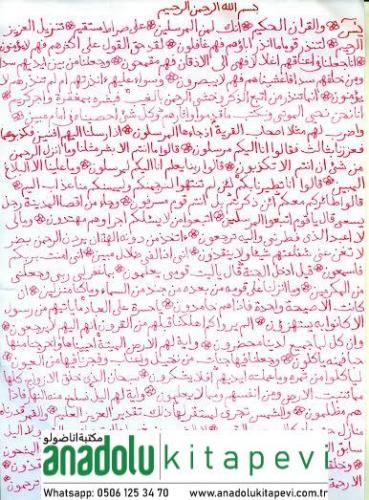 بسم الله الرحمن الرحيم
يس والقرآن الحكيم انك لمن المرسلين على صراط مستقيم تنزيل العزيز
الرحيم لتنذر قوما ما انذر آباؤهم فهم غافلون لقد حق القول على اكثرهم فهم لا يؤمنون
انا جعلنا في اعناقهم اغلالا فهي الى الاذقان فهم مقمحون وجعلنا من بين ايديهم سدا
ومن خلفهم سدا فاغشيناهم فهم لا يبصرون وسواء عليهم ءانذرتهم ام لم تنذرهم لا
يؤمنون انما تنذر من اتبع الذكر وخشي الرحمن بالغيب فبشره بمغفرة واجر كريم
انا نحن نحيي الموتى ونكتب ما قدموا وآثارهم وكل شئ احصيناه في امام مبين
واضرب لهم مثلا اصحاب القرية اذ جاءها المرسلون اذ ارسلنا اليهم اثنين فكذبوهما
فعززنا بثالث فقالوا انا اليكم مرسلون قالوا ما انتم الا بشر مثلنا وما انزل الرحمن
من شئ ان انتم الا تكذبون قالوا ربنا يعلم انا اليكم لمرسلون وما علينا الا البلاغ
المبين قالوا انا تطيرنا بكم لئن لم تنتهوا لنرجمنكم وليمسنكم منا عذاب اليم
قالوا طائركم معكم ائن ذكرتم بل انتم قوم مسرفون وجاء من اقصا المدينة رجل
يسعى قال يا قوم اتبعوا المرسلين اتبعوا من لا يسئلكم اجرا وهم مهتدون وما لي
لا اعبد الذي فطرني واليه ترجعون ءاتخذ من دونه آلهة ان يردن الرحمن بضر
لا تغن عني شفاعتهم شيئا ولا ينقذون اني اذا لفي ضلال مبين اني آمنت بربكم
فاسمعون قيل ادخل الجنة قال يا ليت قومي يعلمون بما غفر لي ربي وجعلني
من المكرمين وما انزلنا على قومه من بعده من جند من السماء وما كنا منزلين ان
كانت الا صيحة واحدة فاذا هم خامدون يا حسرة على العباد ما يأتيهم من رسول
الا كانوا به يستهزؤن الم يروا كم اهلكنا قبلهم من القرون انهم اليهم لا يرجعون
وان كل لما جميع لدينا محضرون وآية لهم الارض الميتة احييناها واخرجنا منها
حبا فمنه يأكلون وجعلنا فيها جنات من نخيل واعناب وفجرنا فيها من العيون
ليأكلوا من ثمره وما عملته ايديهم افلا يشكرون سبحان الذي خلق الازواج كلها
مما تنبت الارض ومن انفسهم ومما لا يعلمون وآية لهم الليل نسلخ منه النهار فاذا
هم مظلمون والشمس تجري لمستقر لها ذلك تقدير العزيز العليم والقمر قدرناه
منازل
سابق
مكتبة اناضولو
anadolu kitapevi
Whatsapp: 0506 125 34 70 www.anadolukitapevi.com.tr